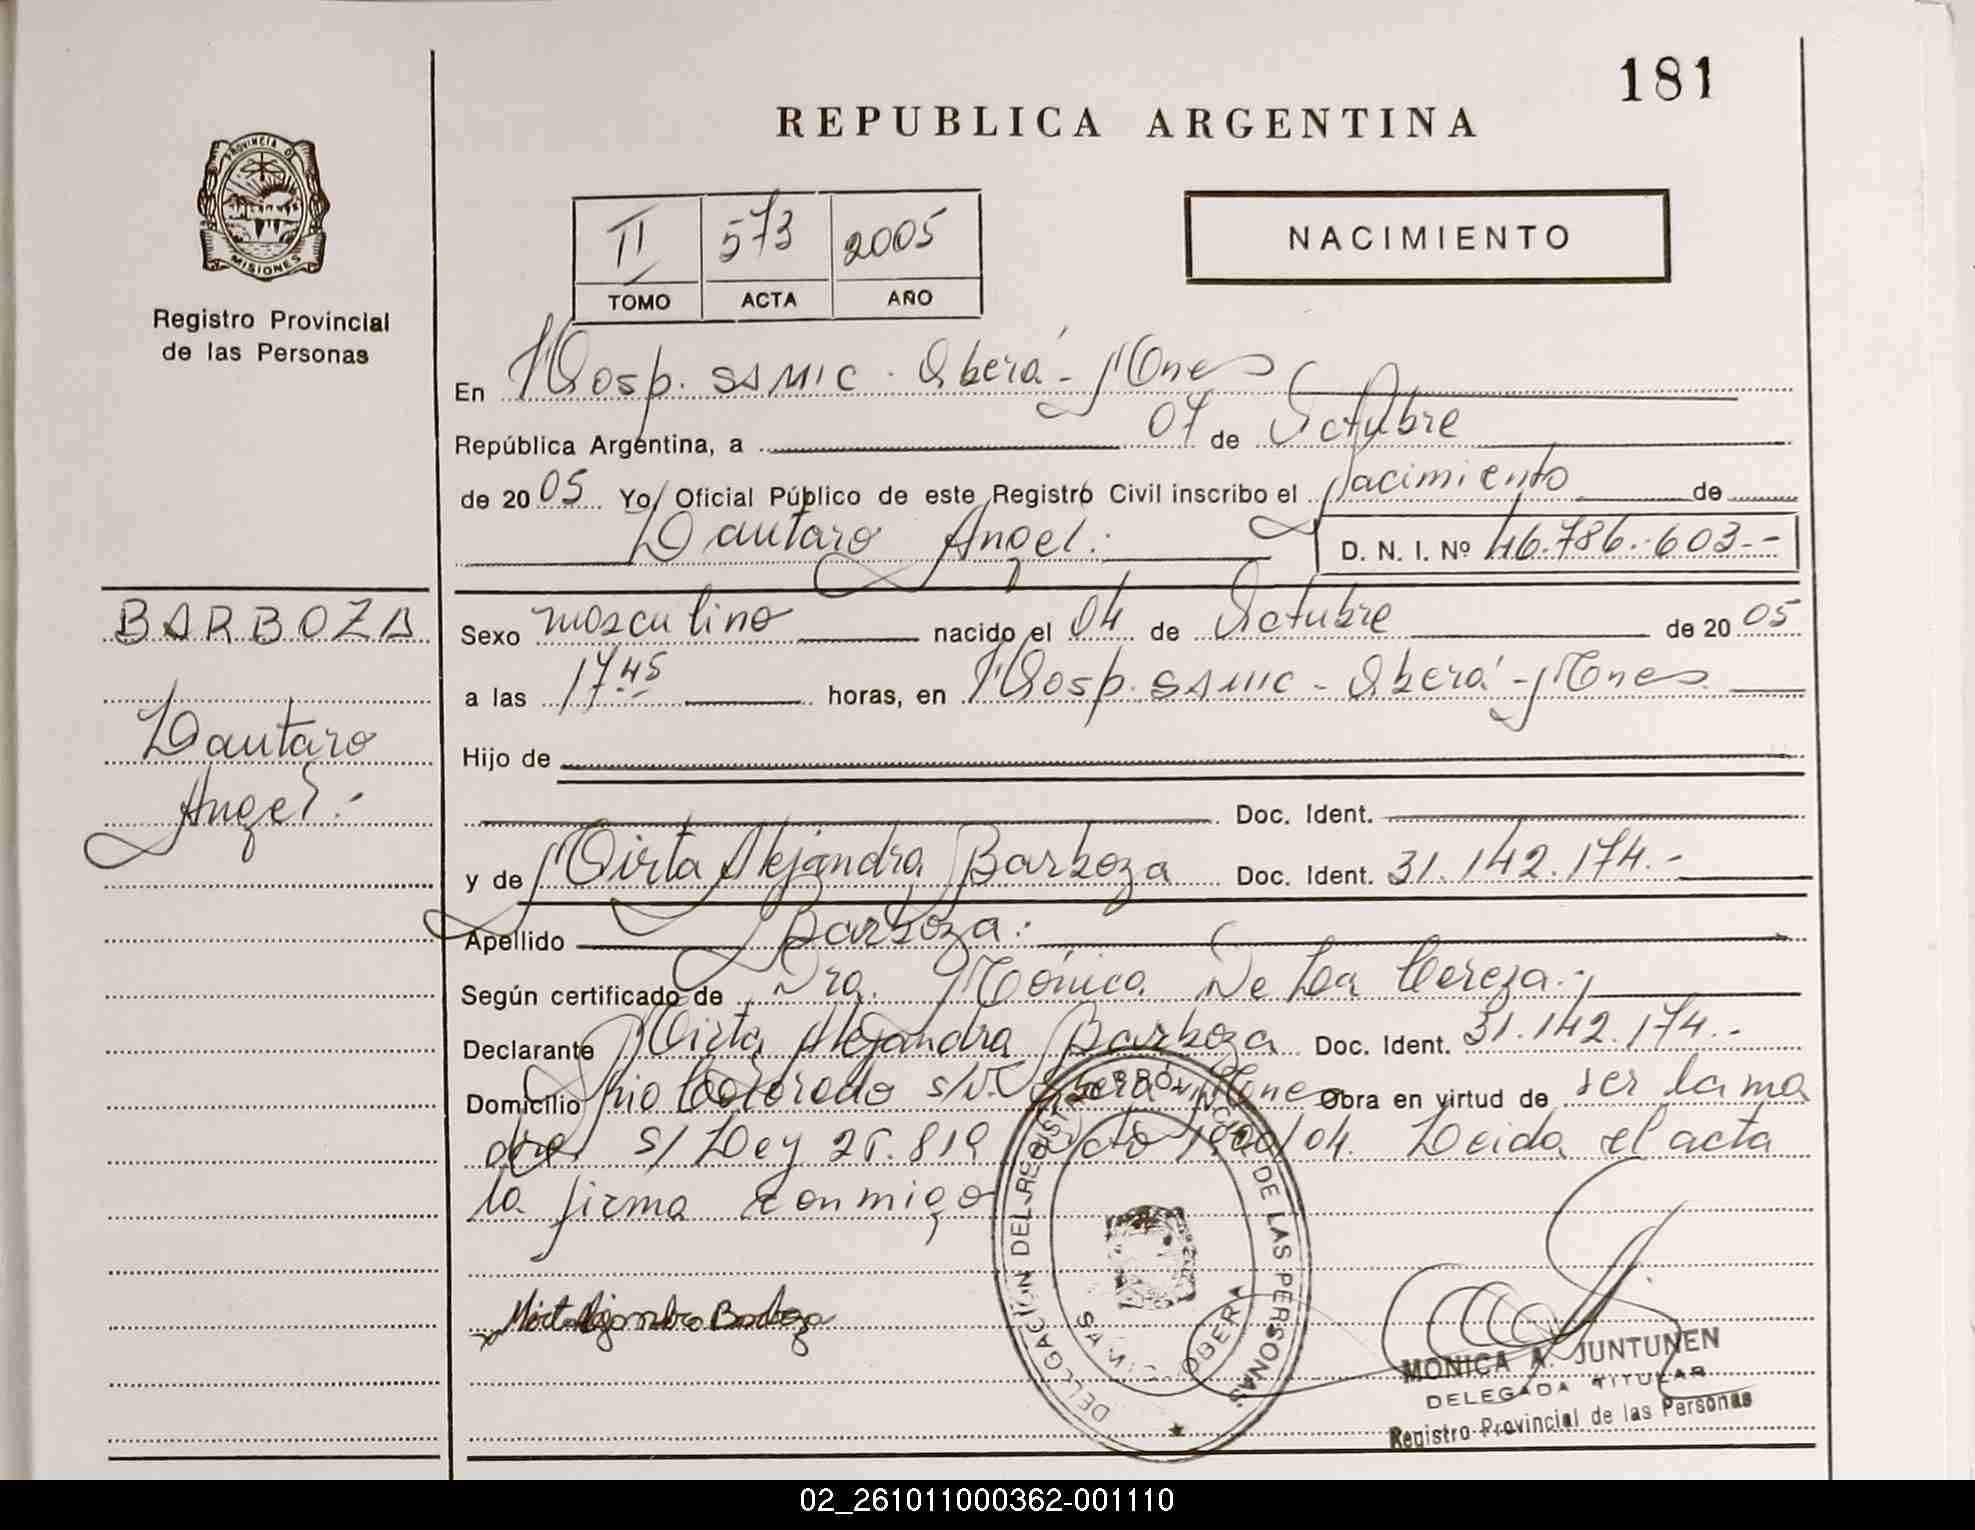 181
REPUBLICA ARGENTINA
PROVINCIA D
MISIONES
Registro Provincial
de las Personas
II 573 2005
TOMO ACTA AÑO
NACIMIENTO
En Hosp. SAMIC - Oberá - Mnes
República Argentina, a 07 de Octubre
de 2005 Yo, Oficial Público de este Registro Civil inscribo el Nacimiento de
Lautaro Angel.- D. N. I. Nº 46.786.603.-
BARBOZA
Lautaro
Angel.-
Sexo masculino nacido el 04 de Octubre de 2005
a las 17.45 horas, en Hosp. SAMIC - Oberá - Mnes.
Hijo de
Doc. Ident.
y de Mirta Alejandra Barboza Doc. Ident. 31.142.174.-
Apellido Barboza.-
Según certificado de Dra. Mónica De La
Declarante Mirta Alejandra Barboza Doc. Ident. 31.142.174.-
Domicilio Colorado s/Nº Oberá Mnes Obra en virtud de ser la ma
dre s/ Ley 25.819 Dcto 1900/04. Leida el acta
la firma conmigo
Mirta Alejandra Barboza
DELEGACIÓN DEL REGISTRO PROVINCIAL DE LAS PERSONAS
SAMIC OBERA
MONICA A. JUNTUNEN
DELEGADA TITULAR
Registro Provincial de las Personas
02_261011000362-001110